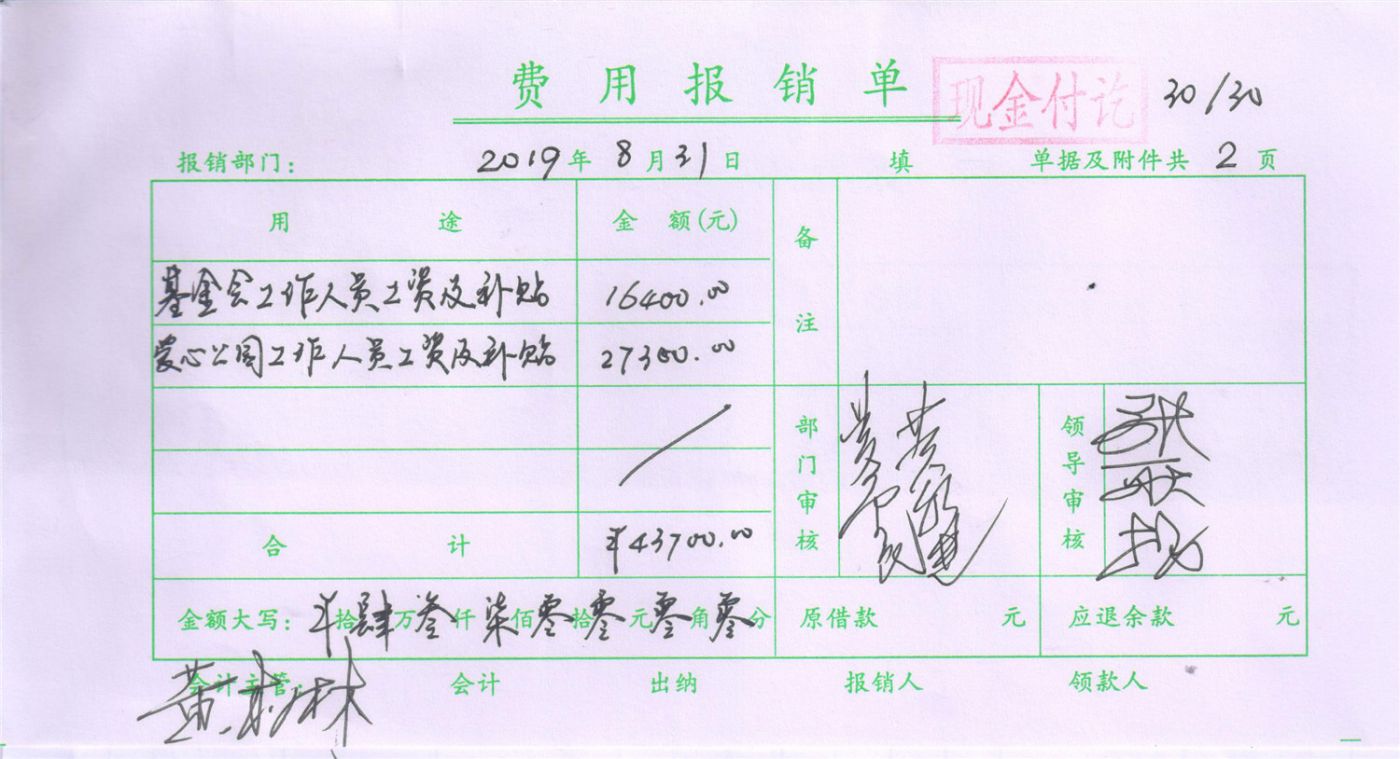 费用报销单 现金付讫 30/30
报销部门： 2019年8月31日 填 单据及附件共2页
用途 金额(元) 备注
基金会工作人员工资及补贴 16400.00
爱心公司工作人员工资及补贴 27300.00
部门审核 领导审核
合计 ¥43700.00
金额大写：¥拾肆万叁仟柒佰零拾零元零角零分 原借款 元 应退余款 元
会计主管 会计 出纳 报销人 领款人